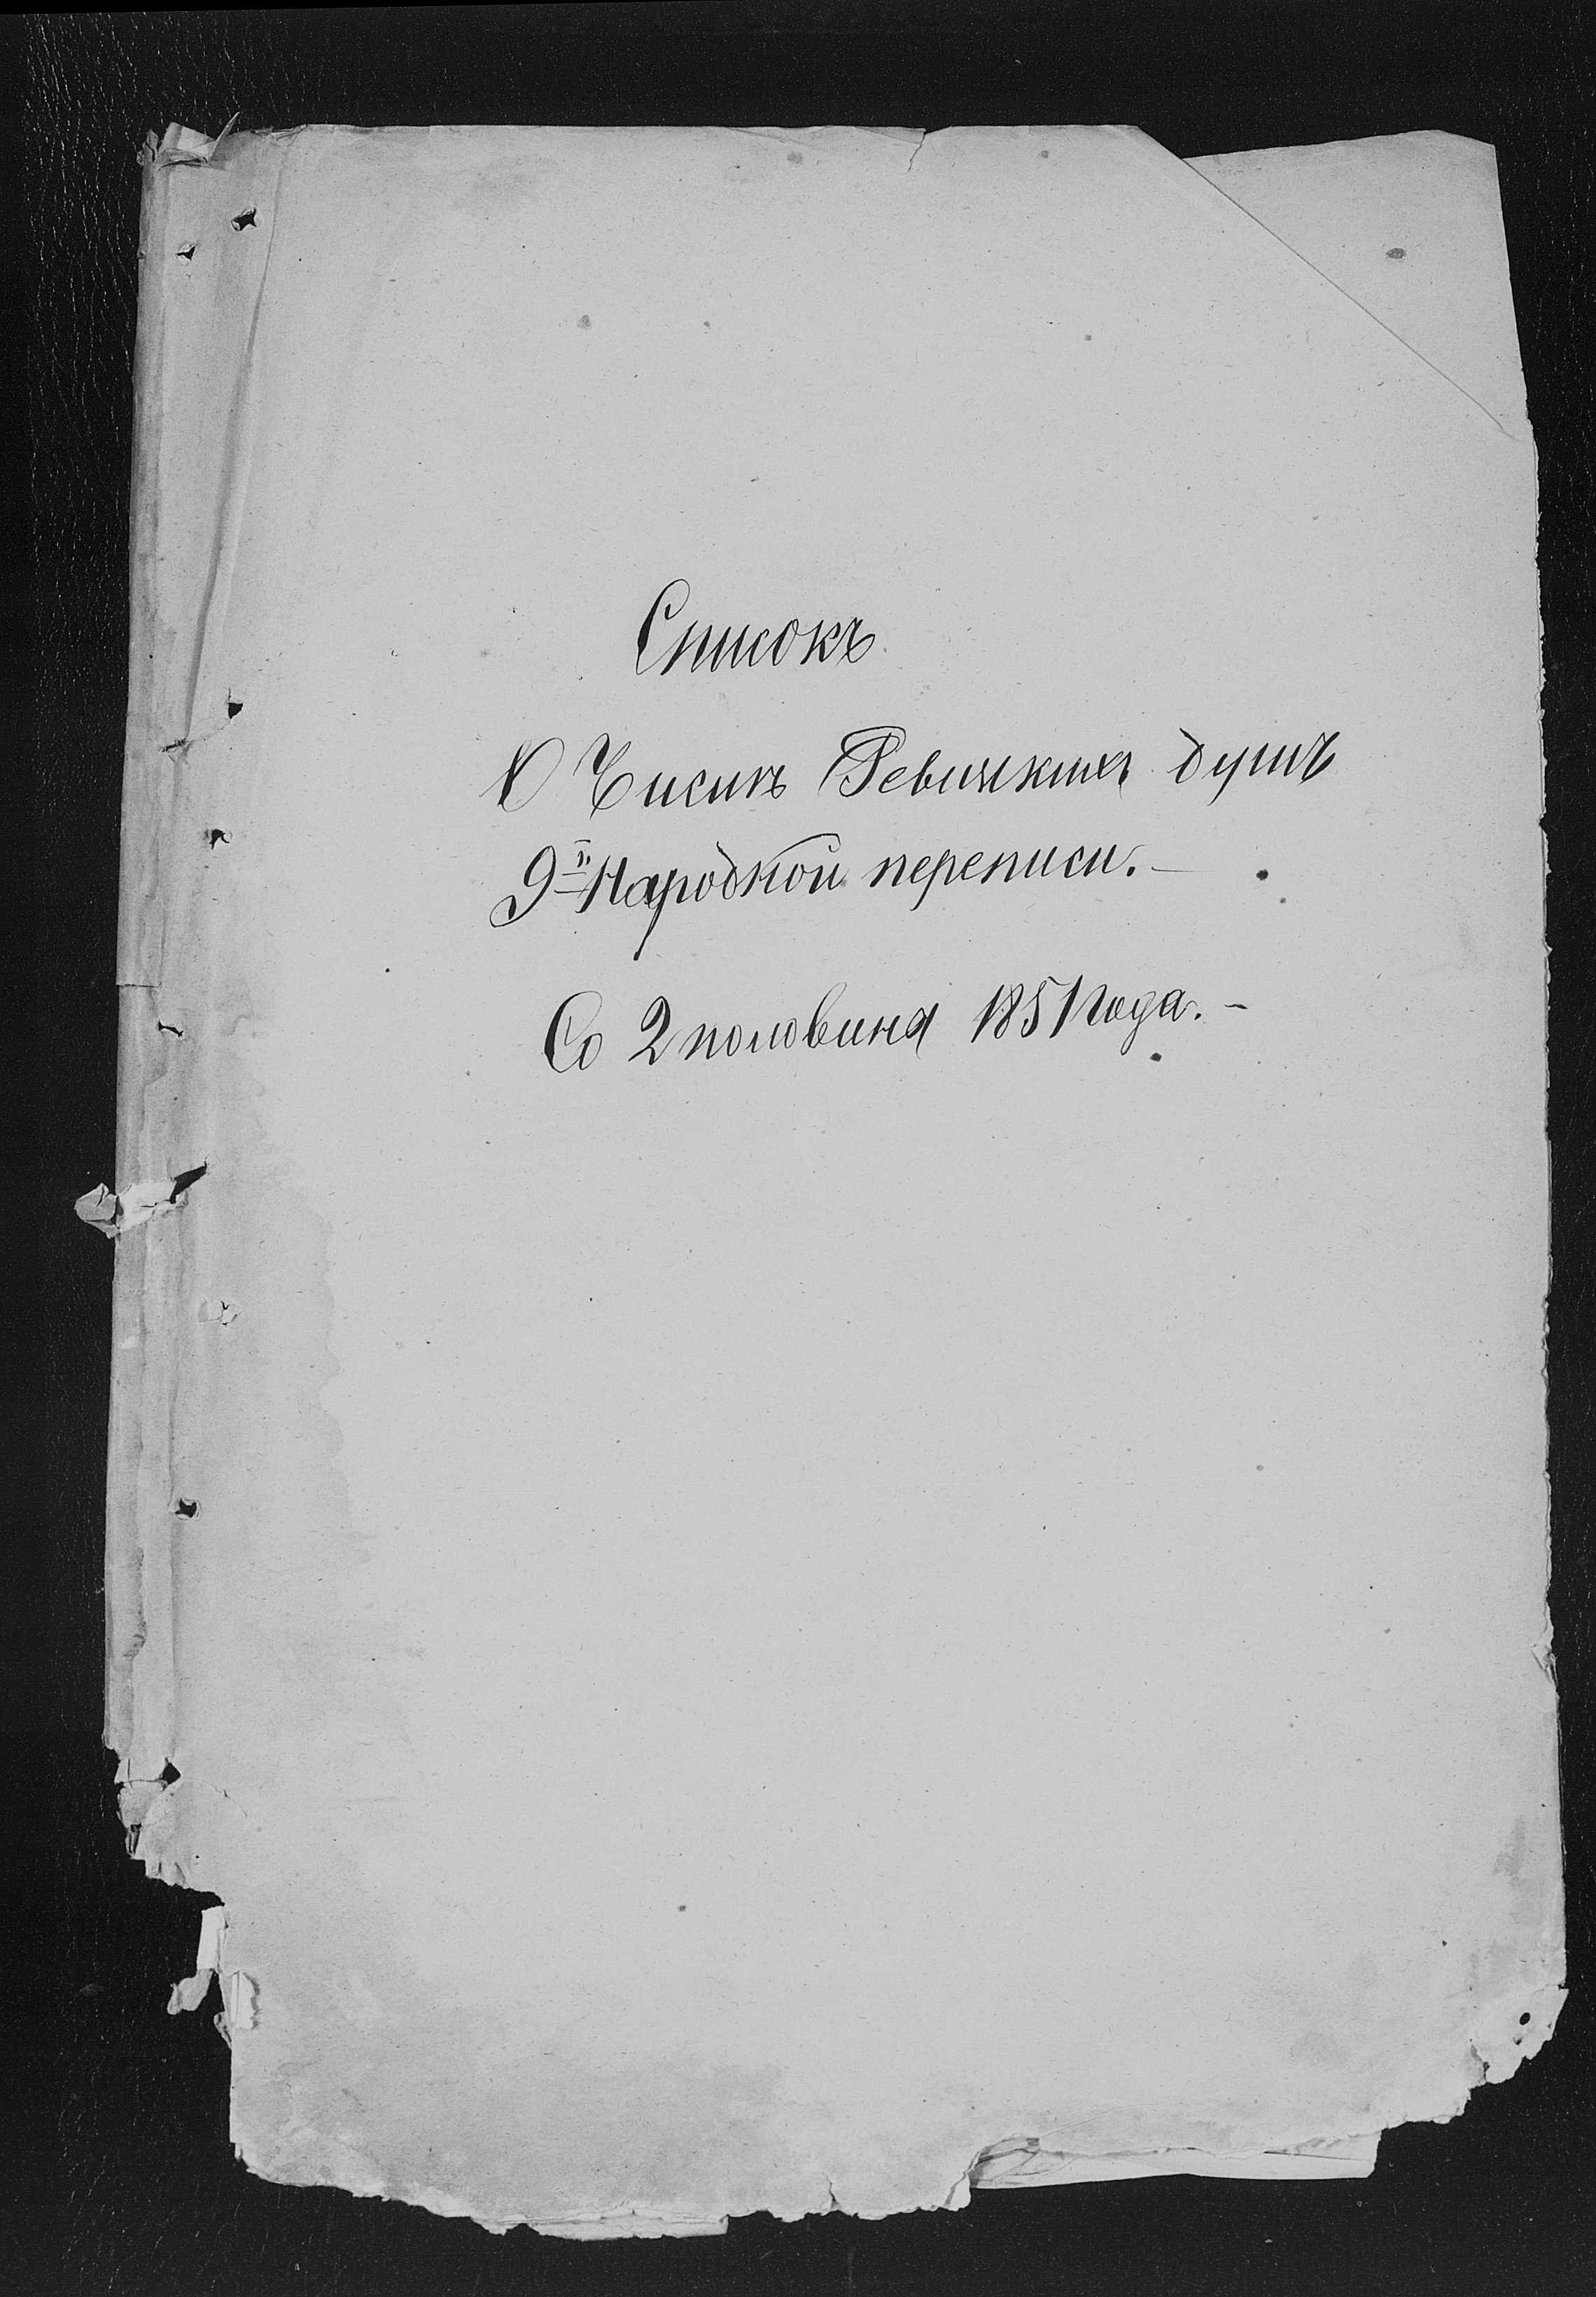 Списокъ
О Числѣ Ревизскихъ душъ
9й Народной переписи. —
Со 2 половины 1851 года. —